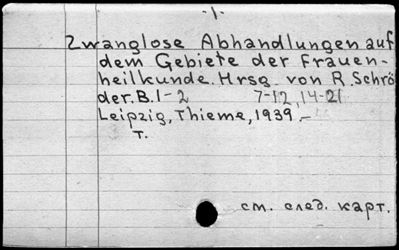 -1-
Zwanglose Abhandlungen auf
dem Gebiete der Frauen-
heilkunde. Hrsg. von R. Schrö-
der. B. 1-2 7-12, 14-21
Leipzig, Thieme, 1939.-
T.
см. след. карт.